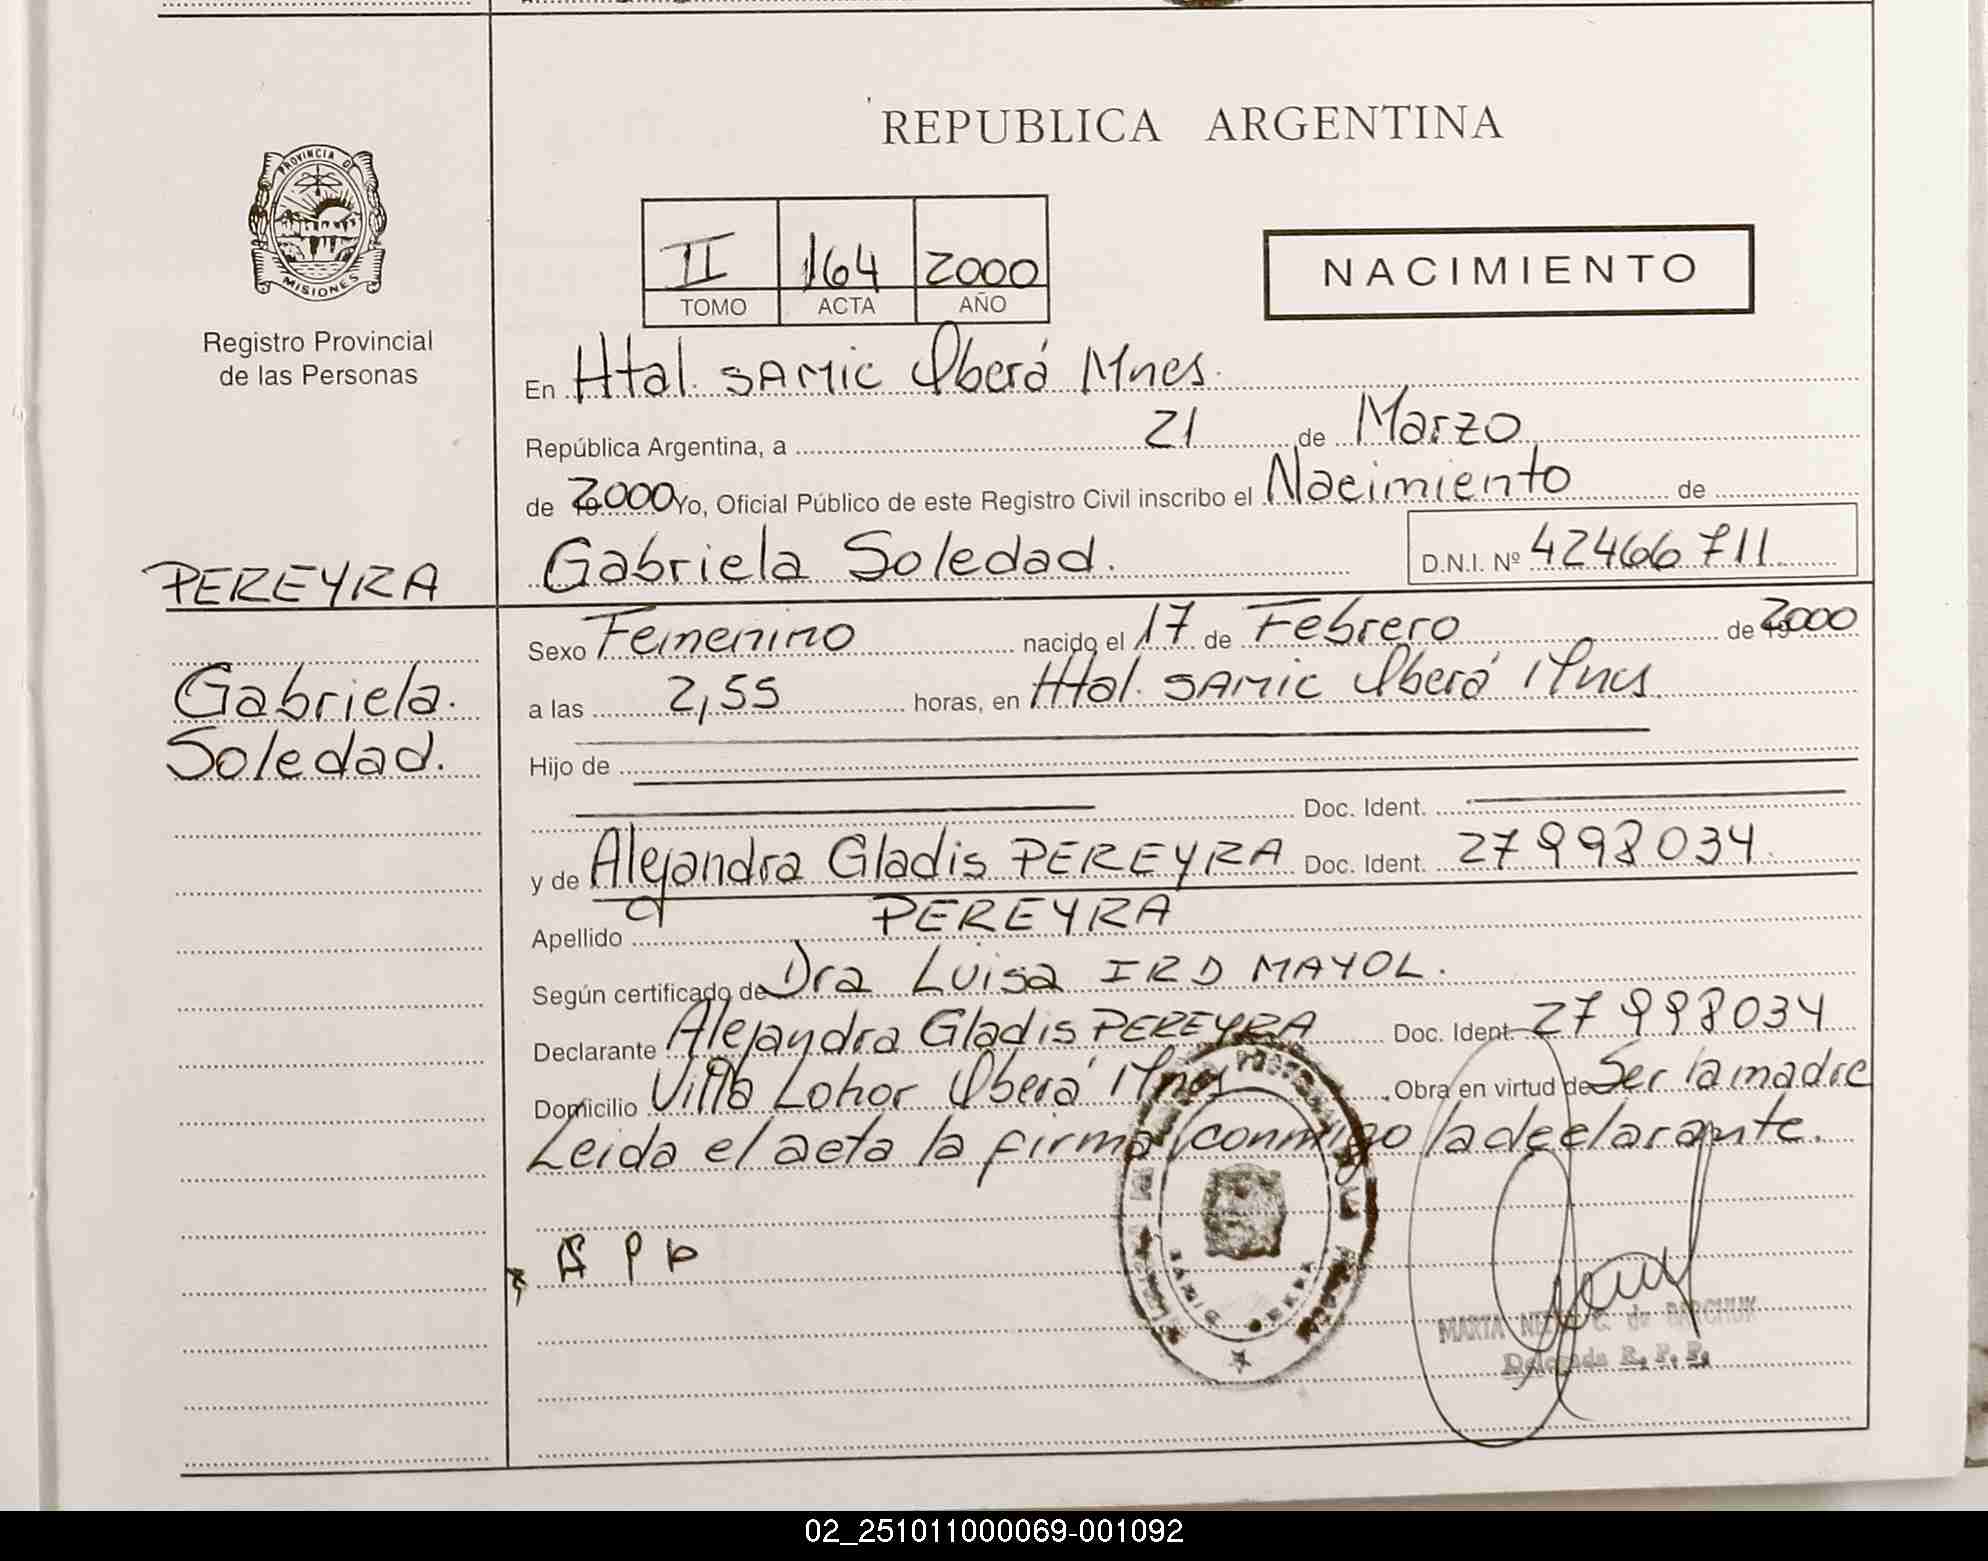 REPUBLICA ARGENTINA
PROVINCIA DE
MISIONES
Registro Provincial
de las Personas
II 164 2000
TOMO ACTA AÑO
NACIMIENTO
En Htal. SAMIC Oberá Mnes.
República Argentina, a 21 de Marzo
de 2000 Yo, Oficial Público de este Registro Civil inscribo el Nacimiento de
Gabriela Soledad. D.N.I. Nº 42466711
PEREYRA
Gabriela.
Soledad.
Sexo Femenino nacido el 17 de Febrero de 2000
a las 2,55 horas, en Htal. SAMIC Oberá Mnes
Hijo de
Doc. Ident.
y de Alejandra Gladis PEREYRA Doc. Ident. 27998034
Apellido PEREYRA
Según certificado de Dra Luisa IRD MAYOL.
Declarante Alejandra Gladis PEREYRA Doc. Ident. 27998034
Domicilio Villa Lohor Oberá Mnes Obra en virtud de Ser la madre
Leida el acta la firma conmigo la declarante.
A P
MARTA de
Delegada R. P. P.
02_251011000069-001092